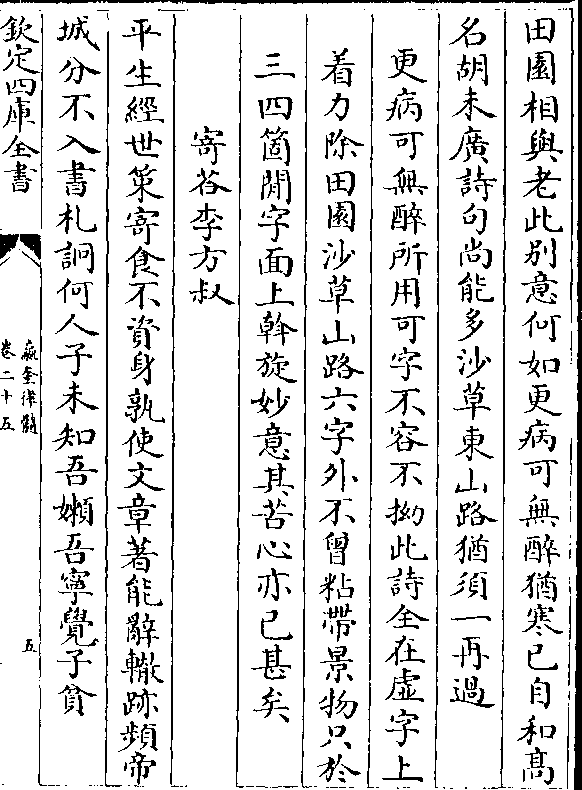 田園相與老此别意何如更病可無醉猶寒已自和髙
名胡未廣詩句尚能多沙草東山路猶須一再過
更病可無醉所用可字不容不拗此詩全在虚字上
着力除田園沙草山路六字外不曾粘帶景物只於
三四箇閒字面上斡旋妙意其苦心亦已甚矣
寄荅李方叔
平生經世策寄食不資身孰使文章著能辭轍跡頻帝
城分不入書札詗何人子未知吾嬾吾寧覺子貧
欽定四庫全書
瀛奎律髓
卷二十五
五